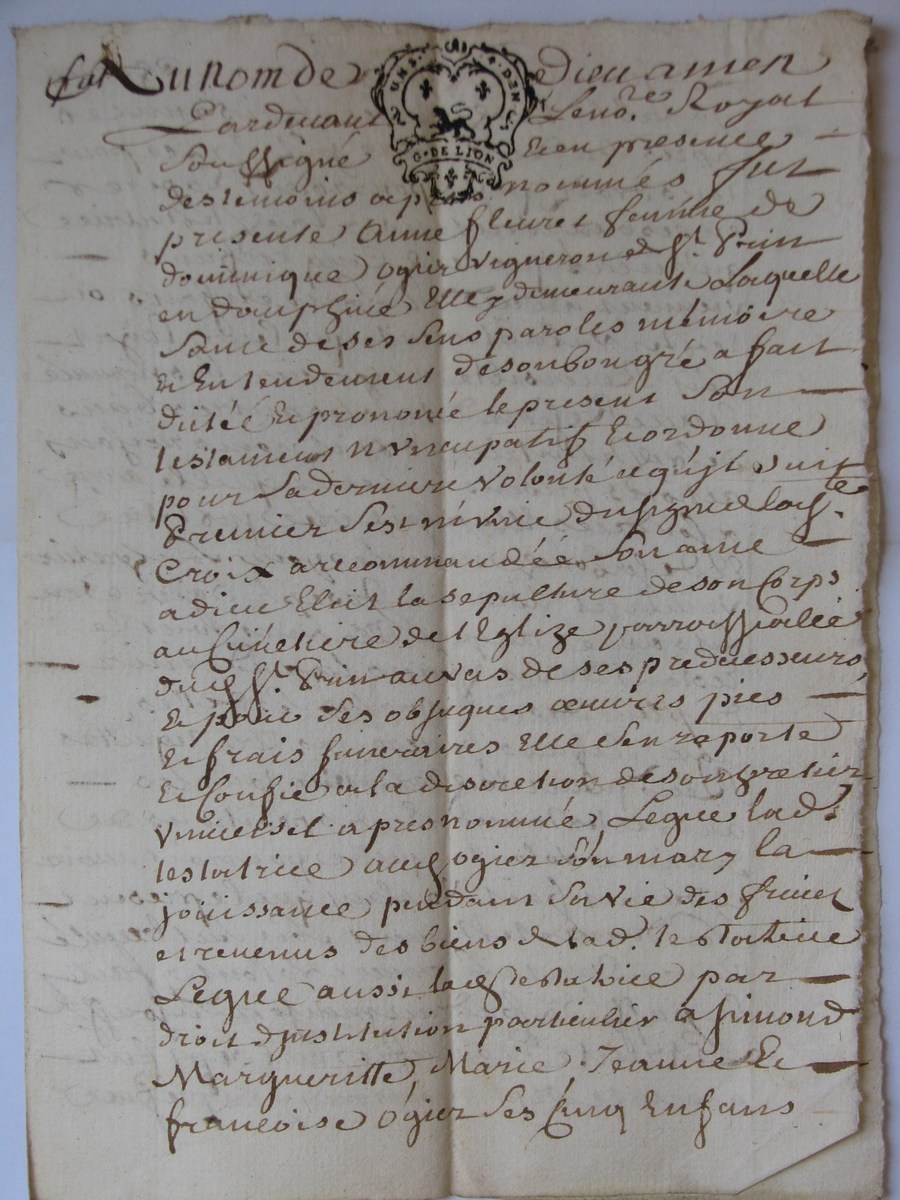 Au nom de Dieu amen
UN S. 8. DEN.
G. DE LION
Pardevant Le no.re Royal
Soussigné Et en presence
des temoins apres nommés fut
presente Anne fleuret femme de
dominique Ogier vigneron de St. Prin
en dauphiné Elle y demeurante Laquelle
Saine de ses Sens paroles mémoire
Et Entendement de son bon gré a fait
dicté Et prononcé le present Son
testament nuncupatif Et ordonné
pour Sa derniere volonté ce qu'jl suit
Premier S'est munie du signe de la ste.
Croix a recommandéé Son ame
a dieu Eleit la sepulture de son Corps
au Cimetiere de l'Eglize parrossialle
dud. St. Prin au vas de ses predecesseurs
Et pour Ses obseques œuvres pies
Et frais funeraires Elle S'en raporte
Et Confie a la discretion de son heretier
vniversel apres nommé Legue lad.
testatrice aud. ogier Son mary la
joüissance pendant Sa vie des fruicts
et revenus des biens de lad. testatrice
Legue aussi lad. testatrice par
droit d'jnstitution particulier a Simond
Margueritte, Marie, Jeanne Et
francoise Ogier Ses Cinq Enfans